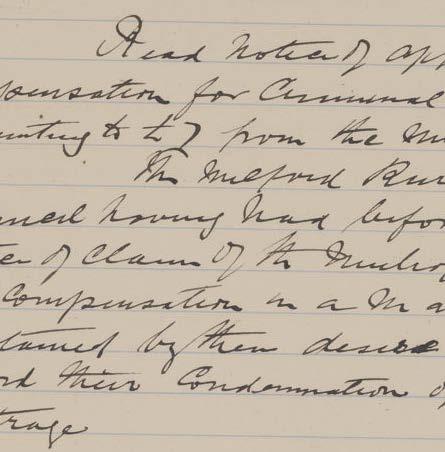 Read Notice of app
pensation for Criminal
unting to £7 from the M
The Milford Rur
uncil having had befor
ce of Claim of the
Compensation in a
tained by them desire
ord their Condemnation of
trage